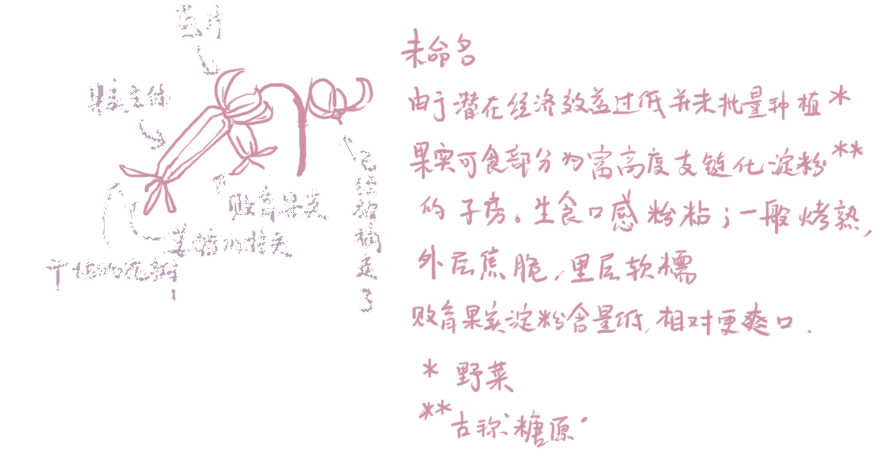 萼片
果实主体
败育果实
萎缩的柱头
干枯的花瓣
已经被摘走了
未命名
由于潜在经济效益过低并未批量种植*
果实可食部分为富高度支链化淀粉**
的子房。生食口感粉粘；一般烤熟，
外层焦脆，里层软糯
败育果实淀粉含量低，相对更爽口.
* 野菜
**古称“糖原”